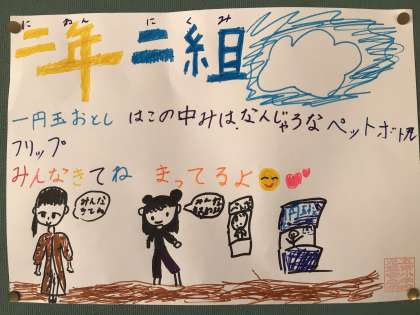 にねん にくみ
二年 二組
一円玉おとし はこの中みは、なんじゃろな ペットボトル
フリップ
みんなきてね まってるよ
みんな
きてね
みんな